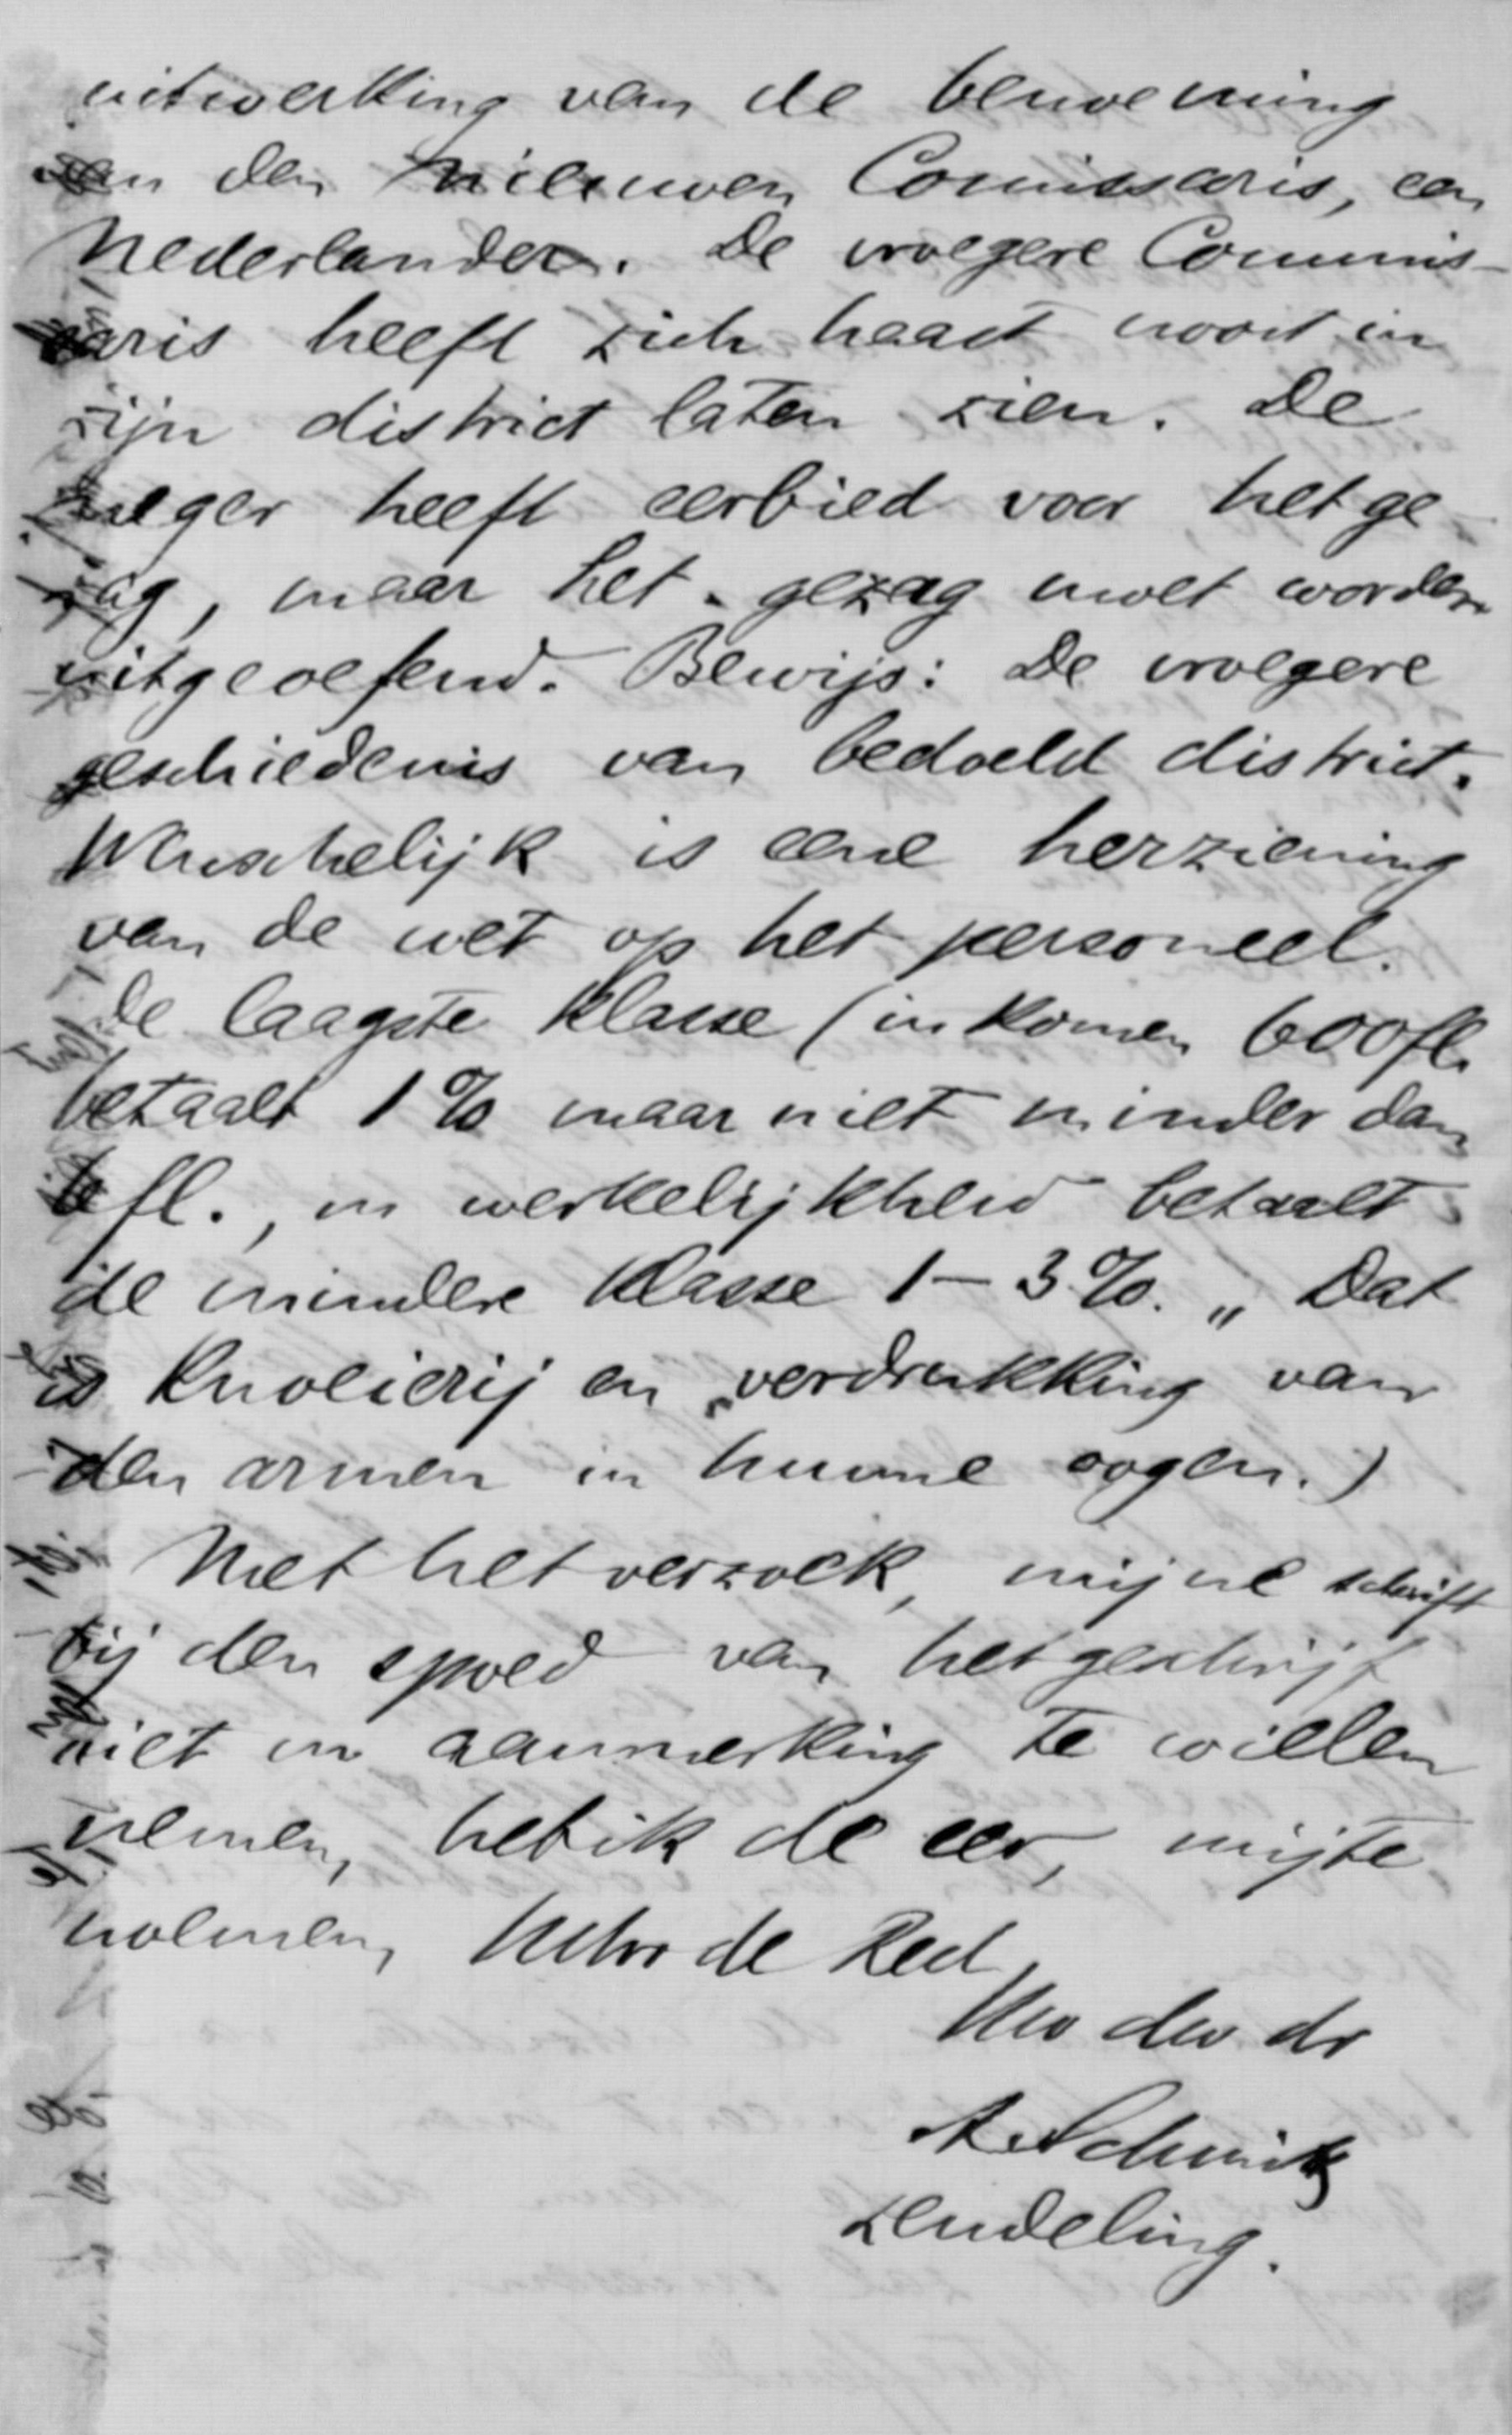 uitwerking van de benoeming
van den nieuwen Comissaris, een
Nederlander. De vroegere Commis-
saris heeft zich haast nooit in
zijn district laten zien. De
neger heeft eerbied voor het ge-
zag, maar het gezag moet worden
uitgeoefend. Bewijs: De vroegere
geschiedenis van bedoeld district.
Wenschelijk is eene herziening
van de wet op het personeel.
De laagste klasse (inkomen 600 fl.
betaalt 1% maar niet minder dan
6 fl., in werkelijkheid betaalt
de mindere klasse 1 - 3%. „Dat
is knoeierij en verdrukking van
den armen in hunne oogen.)
Met het verzoek, mijne schrift
bij den spoed van het geschrijf
niet in aanmerking te willen
nemen, heb ik de eer, mij te
noemen, de Red
Uw dw dr
A. Schmitz
Zendeling.